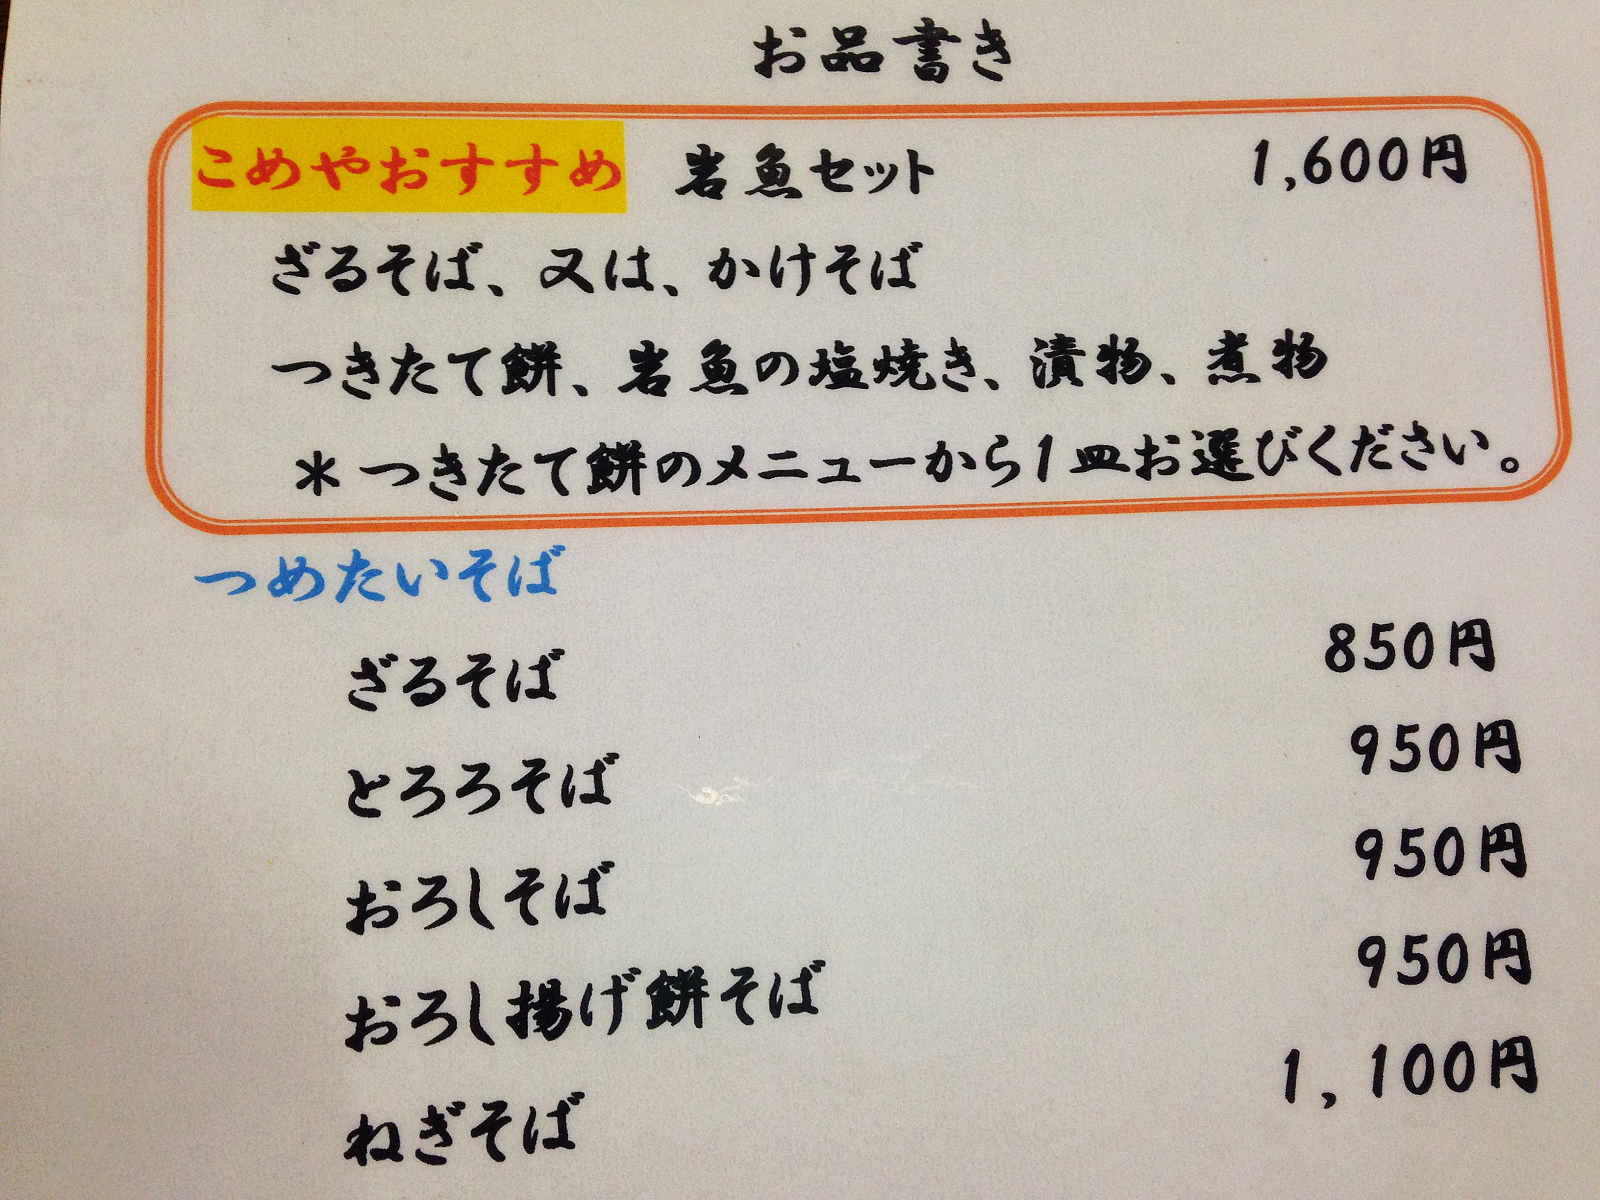 お品書き
こめやおすすめ 岩魚セット 1,600円
ざるそば、又は、かけそば
つきたて餅、岩魚の塩焼き、漬物、煮物
＊つきたて餅のメニューから1皿お選びください。
つめたいそば
ざるそば 850円
とろろそば 950円
おろしそば 950円
おろし揚げ餅そば 950円
ねぎそば 1,100円